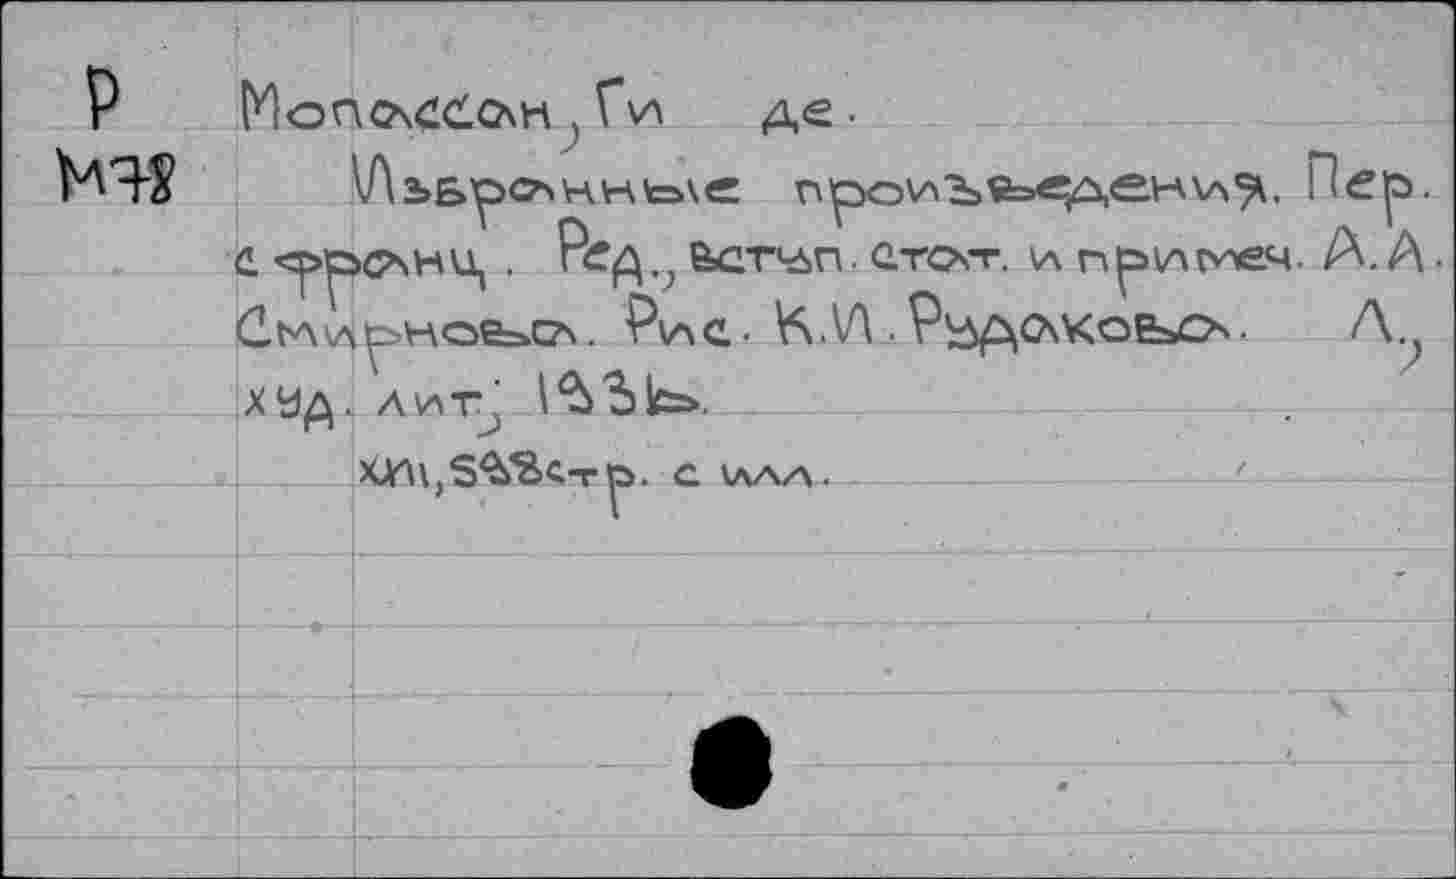 Р Мопассан, Ги де.
М78 Избранные произведения. Пер.
с франц. Ред., вступ. стат. и примеч. А.А.
Смирнова. Рис. К.И. Рудакова. Л.,
худ. лит; 1936.
стр. с илл.